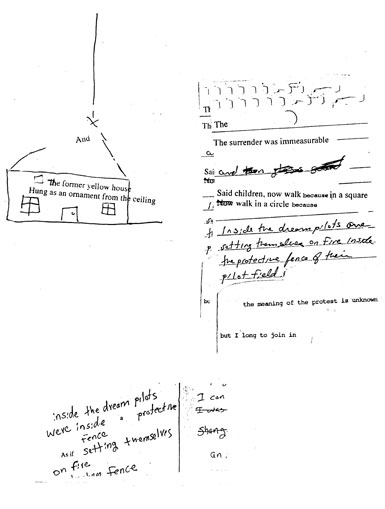 And
The former yellow house
Hung as an ornament from the ceiling
Tl
Th The
The surrender was immeasurable
a
Sai and
Said children, now walk because in a square
Now walk in a circle because
Inside the dream pilots are
setting themselves on fire inside
the protective fence of their
pilot field.
bu the meaning of the protest is unknown
but I long to join in
inside the dream pilots
were inside a protective
fence
And setting themselves
on fire
fence
I can
I was
an.